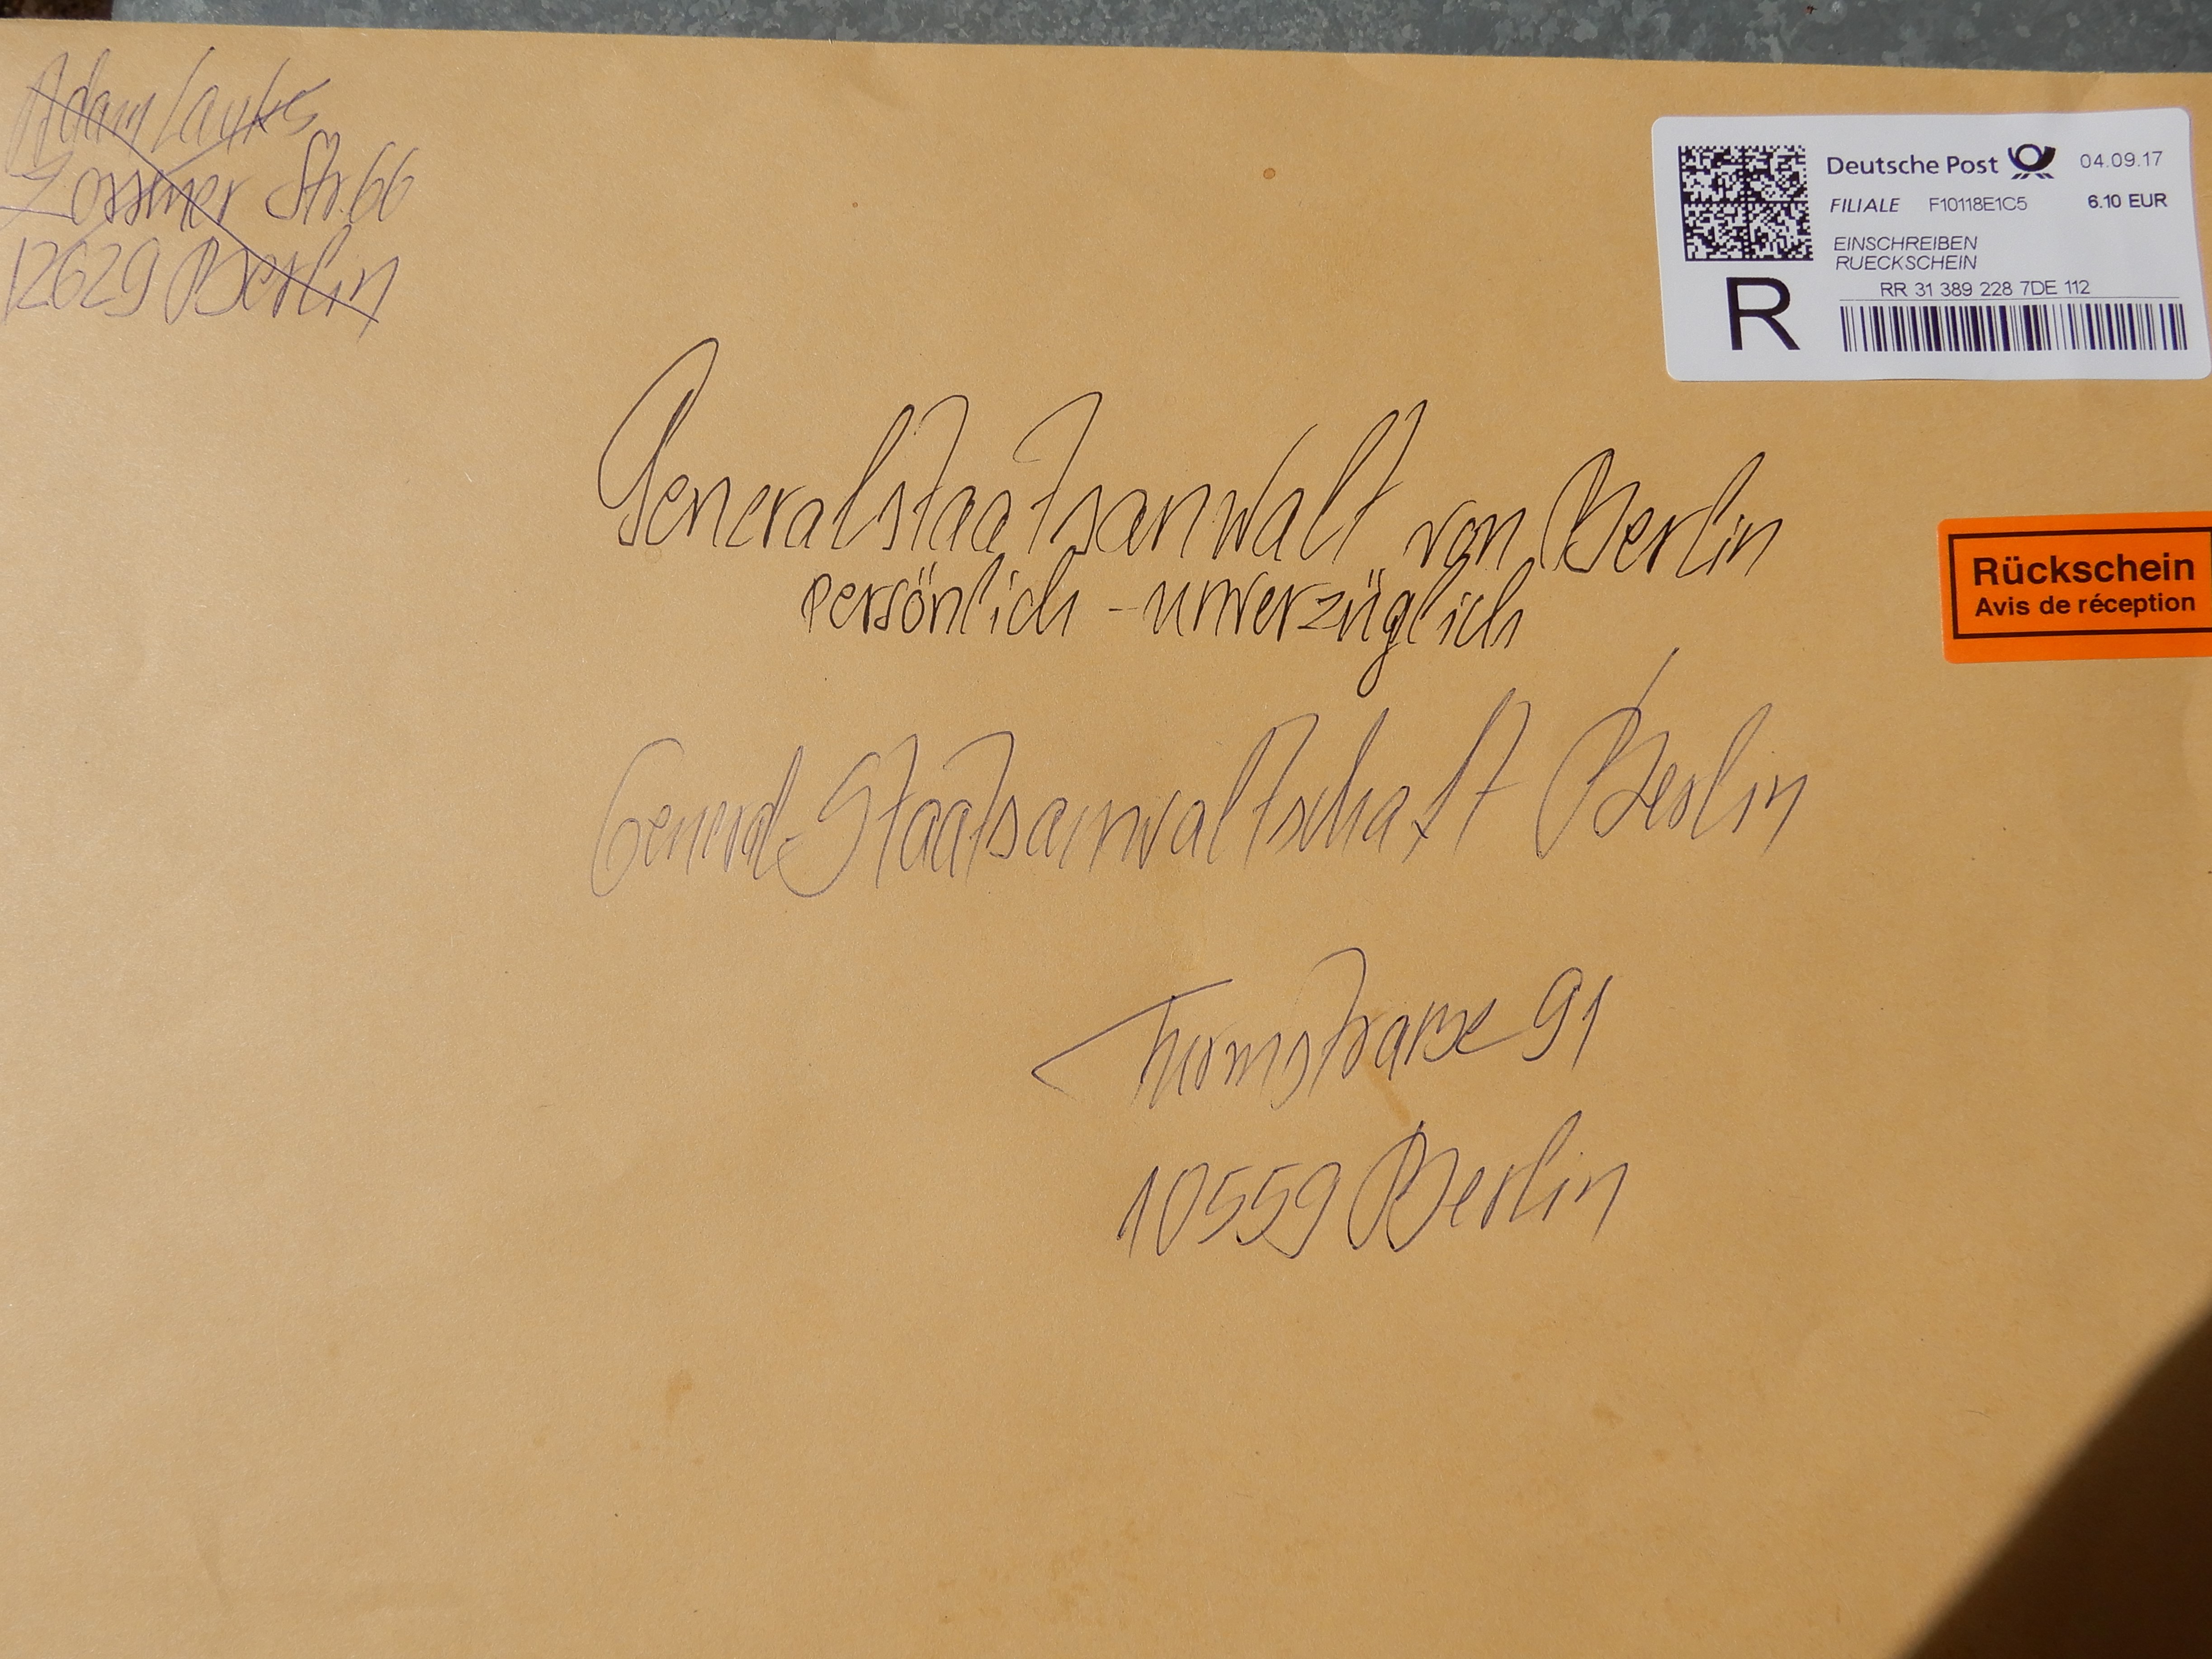 Adam Lauks
Zossener Str. 66
12629 Berlin
Deutsche Post 04.09.17
FILIALE F10118E1C5 6.10 EUR
EINSCHREIBEN
RUECKSCHEIN
RR 31 389 228 7DE 112
R
Generalstaatsanwalt von Berlin
persönlich - unverzüglich
Rückschein
Avis de réception
General-Staatsanwaltschaft Berlin
Turmstraße 91
10559 Berlin